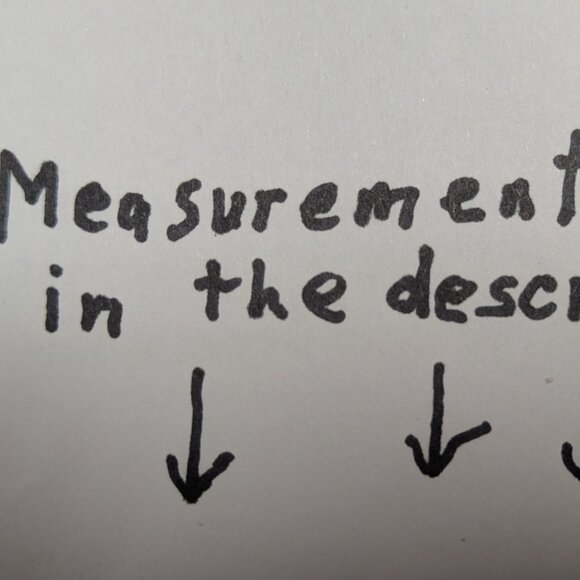 Measurement
in the descr